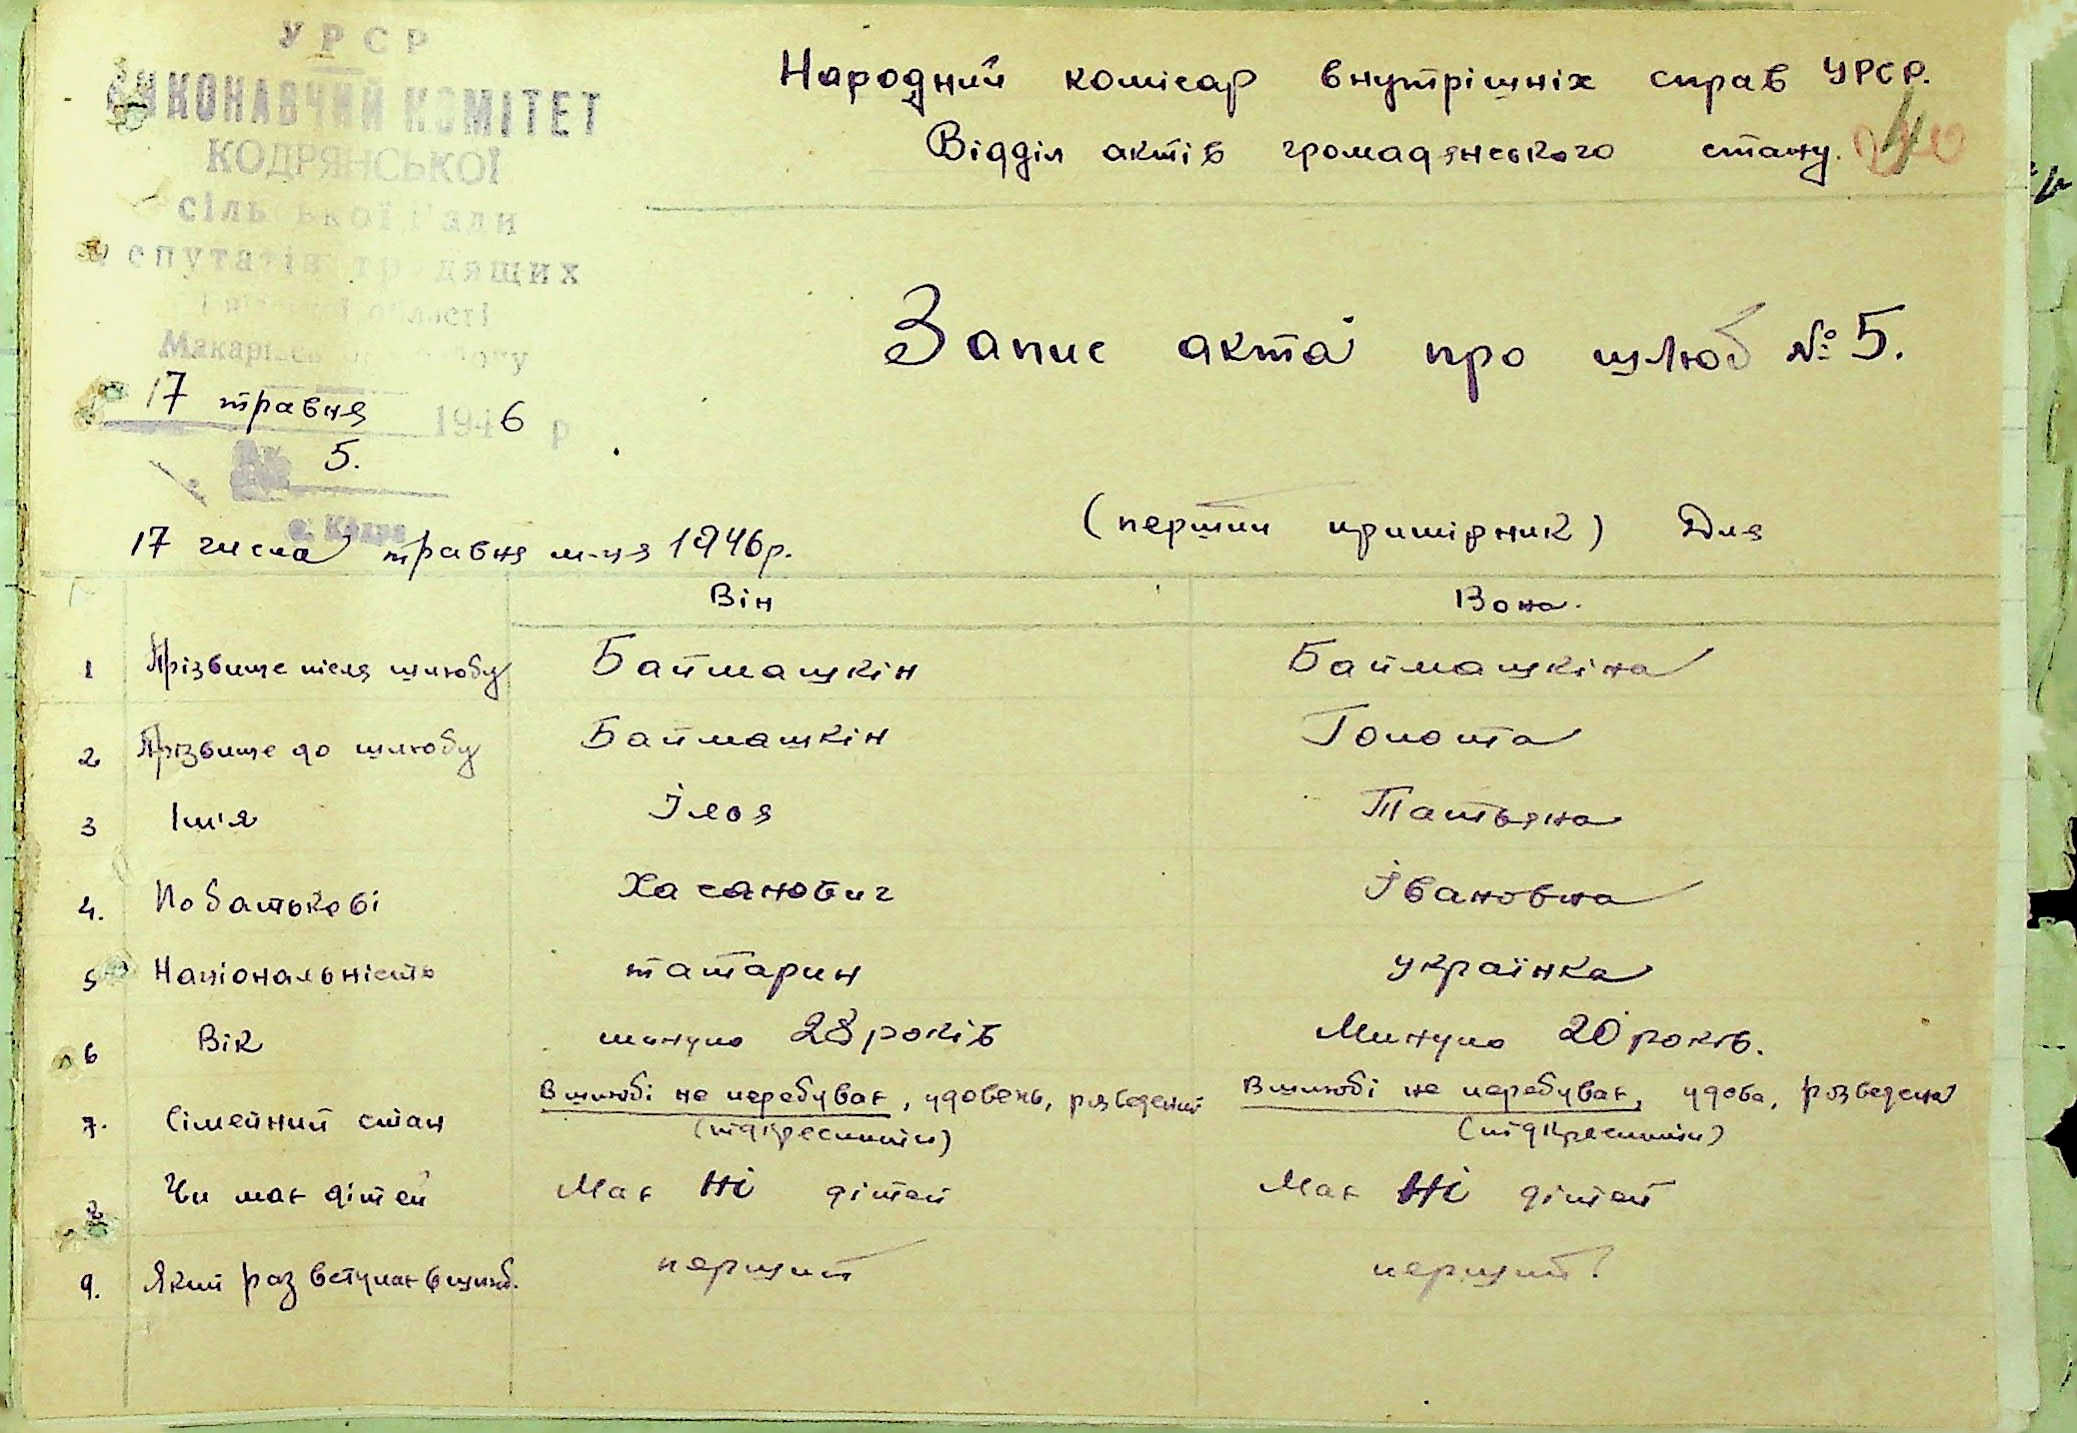 УРСР
ВИКОНАВЧИЙ КОМІТЕТ
КОДРЯНСЬКОЇ
сільської Ради
депутатів трудящих
Київської області
Макарівського району
17 травня 1946 р
5.
с. Кодра
Народний комісар внутрішніх справ УРСР.
Відділ актів громадянського стану.
Запис акта про шлюб № 5.
(перший примірник) Для
17 числа травня м-ця 1946р.
Він Вона.
1 Прізвище після шлюбу Баймашкін Баймашкіна
2 Прізвище до шлюбу Баймашкін Голота
3 Ім'я Ілья Татьяна
4. По батькові Хасанович Івановна
5 Національність татарин українка
6 Вік минуло 28 років Минуло 20 років.
7. Сімейний стан В шлюбі не перебуває, удовець, розведений В шлюбі не перебуває, удова, розведена
(підкреслити) (підкреслити)
8 Чи має дітей Має Ні дітей Має Ні дітей
9. Який раз вступає в шлюб. перший перший